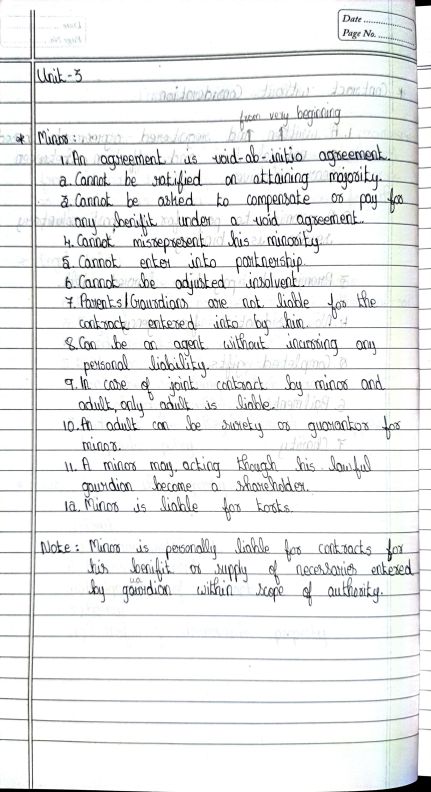 Date ..............
Page No. ..............
Unit - 3
from very beginning
* Minor:
1. An agreement is void-ab-initio agreement.
2. Cannot be ratified on attaining majority.
3. Cannot be asked to compensate or pay for
any benifit under a void agreement.
4. Cannot misrepresent his minority.
5. Cannot enter into partnership.
6. Cannot be adjusted insolvent.
7. Parents/Gaurdians are not liable for the
contract entered into by him.
8. Can be an agent without incurring any
personal liability.
9. In case of joint contract by minor and
adult, only adult is liable.
10. An adult can be surety or guarantor for
minor.
11. A minor may, acting though his lawful
gaurdian become a shareholder.
12. Minor is liable for torts.
Note : Minor is personally liable for contracts for
his benifit or supply of necessaries entered
by guardian within scope of authority.